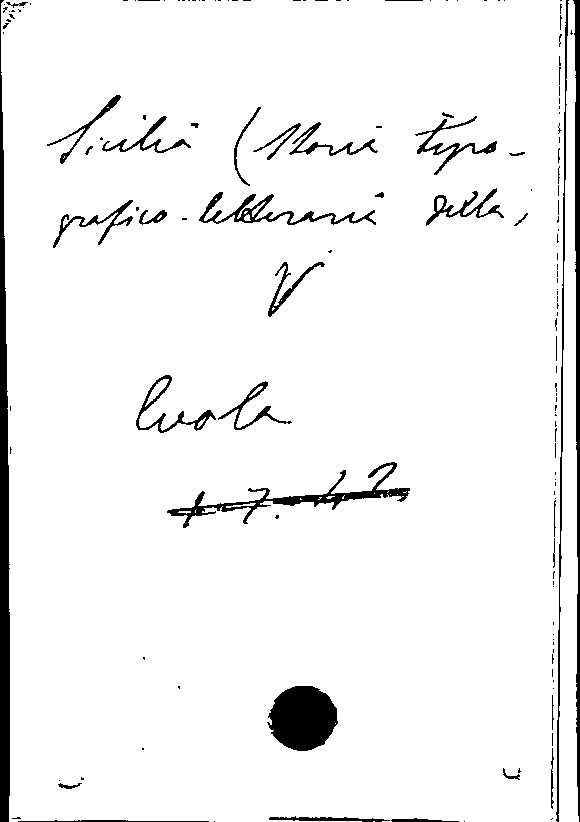 Sicilia (Storia tipo-
grafico-letteraria della)
V
Evola
1 7. 42